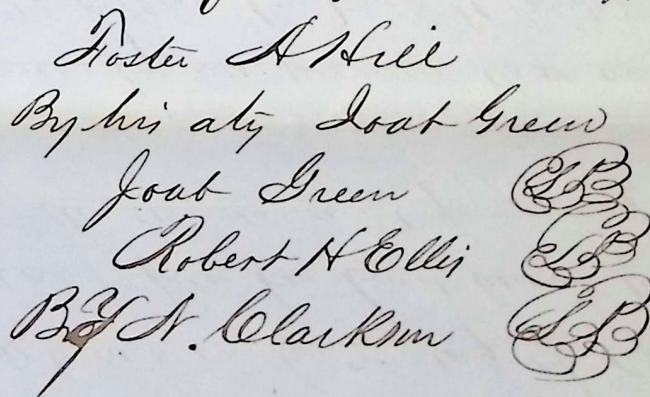 Foster A Hill
By his aty Joab Green
Joab Green
Robert H Ellis
By N. Clarkson